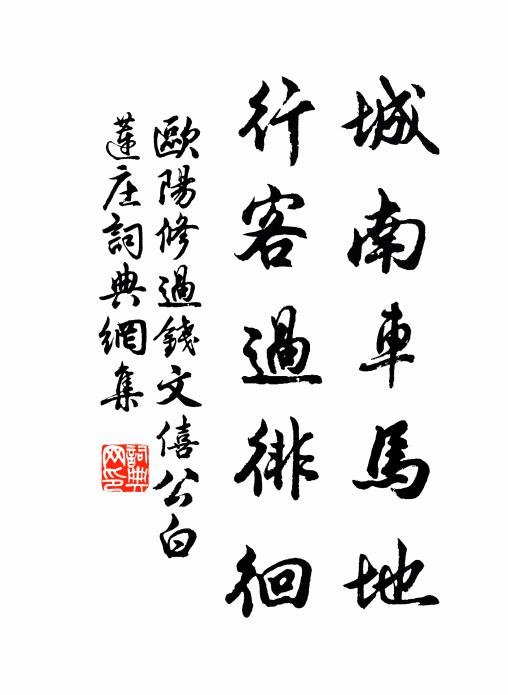 城南車馬地
行客過徘徊
歐陽修過錢文僖公白
蓮庄詞典網集
詞典网印